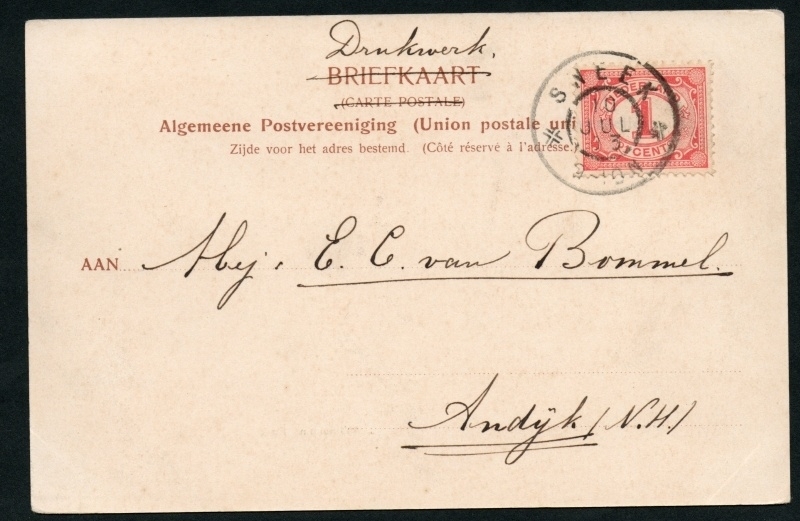 Drukwerk.
BRIEFKAART
(CARTE POSTALE)
Algemeene Postvereeniging (Union postale un
Zijde voor het adres bestemd. (Côté réservé à l'adresse.
SNEEK
JUL
1
CENT
AAN Mej: E. C. van Bommel.
Andijk (N.H.)